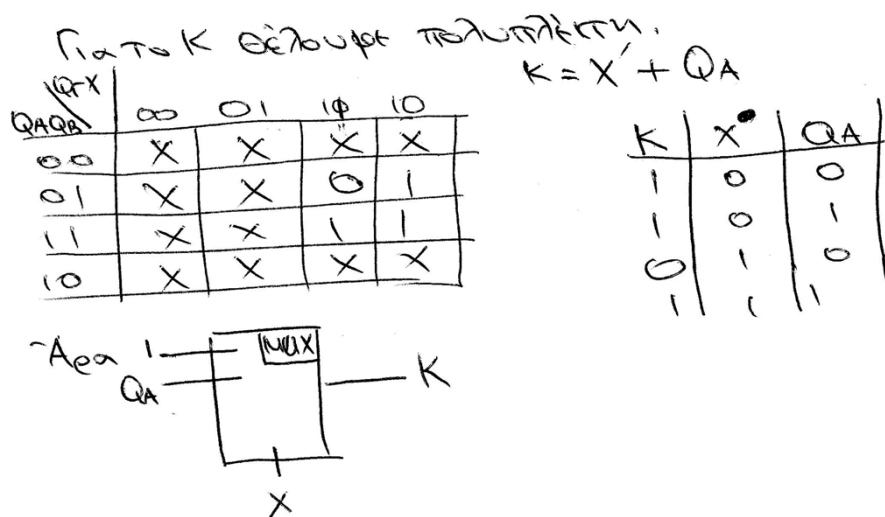 Για το K θέλουμε πολυπλέκτη.
K = X' + QA
QΓX
QAQB 00 01 11 10
00 X X X X
01 X X 0 1
11 X X 1 1
10 X X X X
K X QA
1 0 0
1 0 1
0 1 0
1 1 1
Άρα 1
MUX
QA
K
X